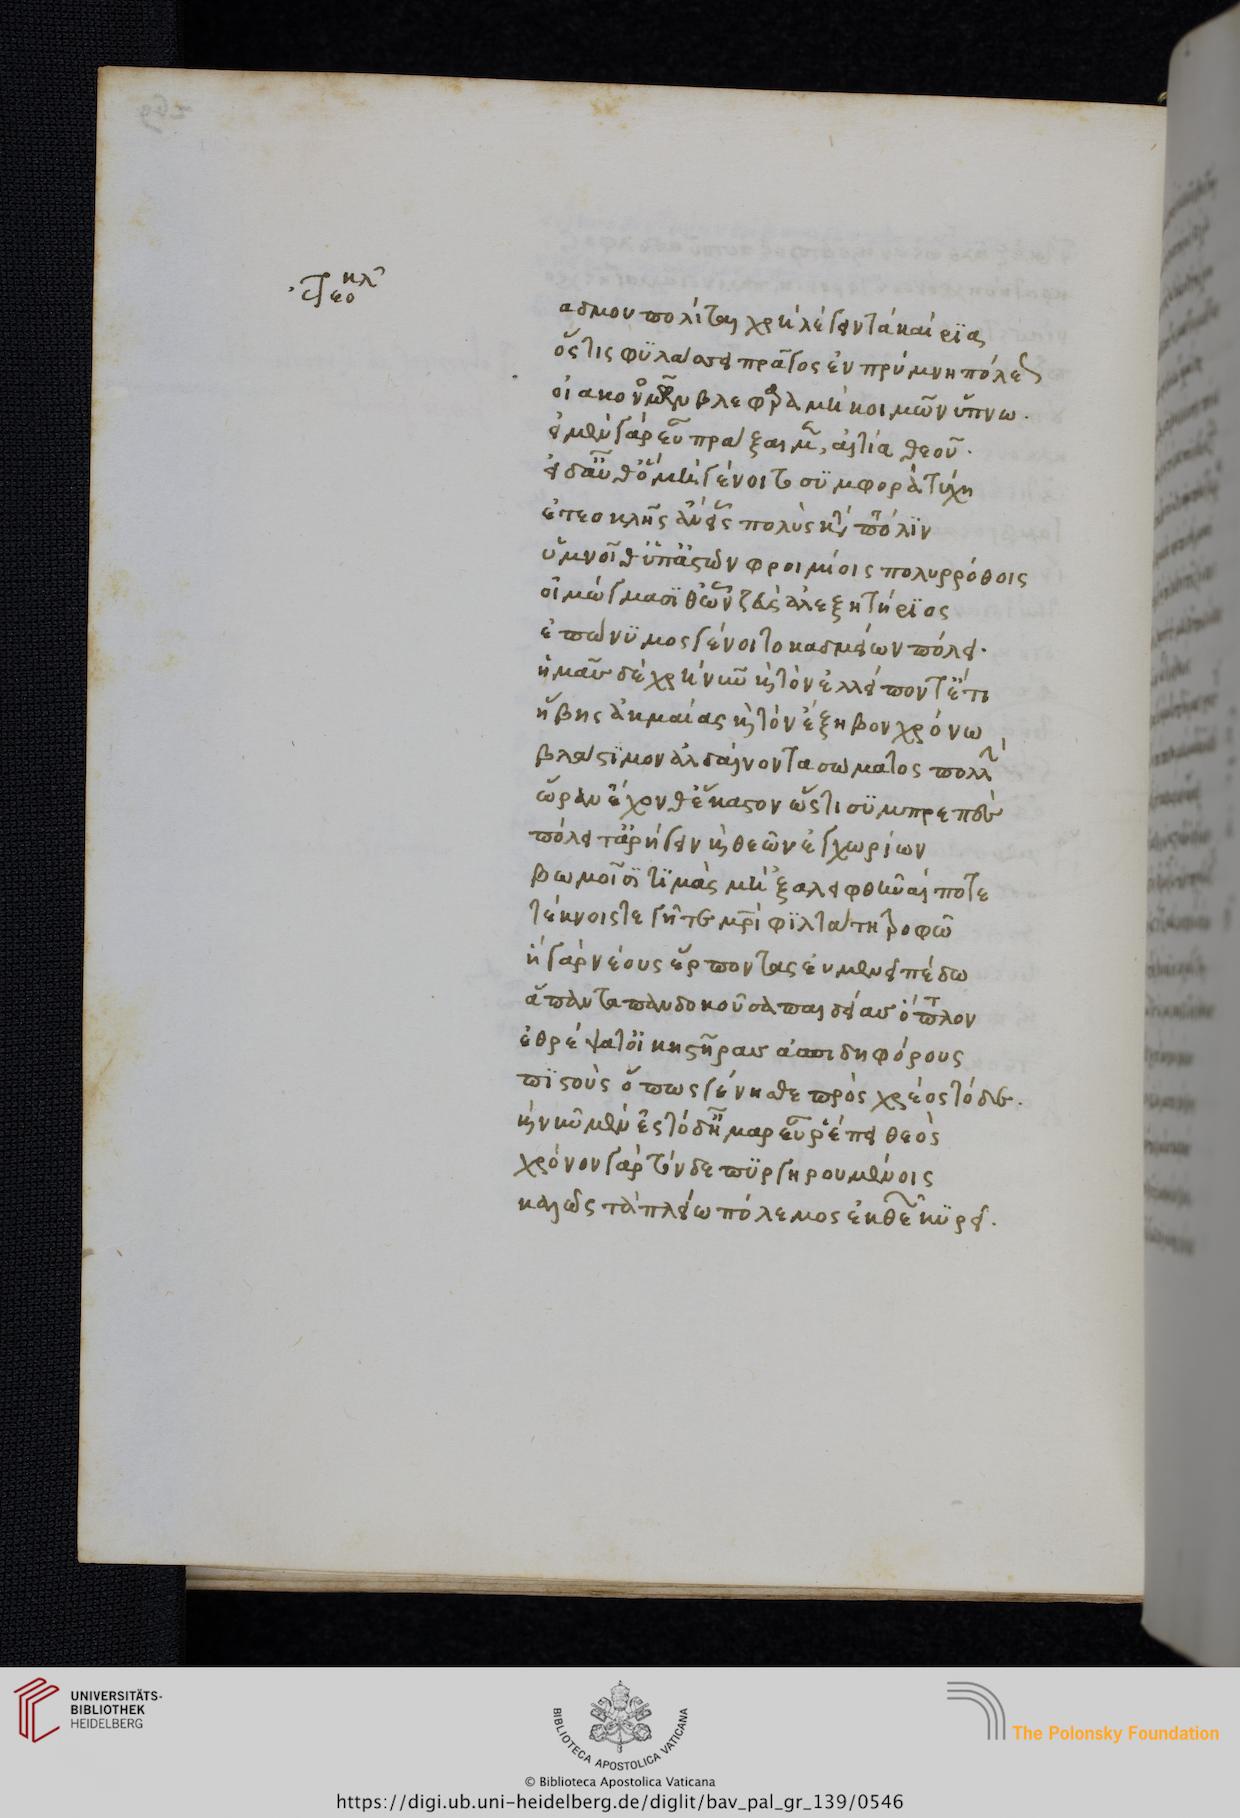 269
ἐτεοκλ
αδμου πολίται χρὴ λέγειν τὰ καίρια
ὅστις φυλάσσει πρᾶγος ἐν πρύμνη πόλεως
οἴακα νωμῶν βλέφαρα μὴ κοιμῶν ὕπνω.
εἰ μὲν γὰρ εὖ πράξαιμεν, αἰτία θεοῦ.
εἰ δ' αὖθ' ὃ μὴ γένοιτο συμφορὰ τύχη
ἐτεοκλῆς ἂν εἷς πολὺς κατὰ πτόλιν
ὑμνοῖθ' ὑπ' ἀστῶν φροιμίοις πολυρρόθοις
οἰμώγμασί θ' ὧν ζεὺς ἀλεξητήριος
ἐπώνυμος γένοιτο καδμείων πόλει.
ἡμᾶς δὲ χρὴ νῦν καὶ τὸν ἐλλείποντ' ἔτι
ἥβης ἀκμαίας καὶ τὸν ἔξηβον χρόνω
βλαστιμὸν ἀλδαίνοντα σώματος πολὺν
ὥραν ἔχονθ' ἕκαστον ὥστι συμπρεπὲς
πόλει τ' ἀρήγειν καὶ θεῶν ἐγχωρίων
βωμοῖσι τιμὰς μὴ 'ξαλειφθῆναί ποτε
τέκνοις τε γῆ τε μητρὶ φιλτάτη τροφῶ
ἡ γὰρ νέους ἕρποντας εὐμενεῖ πέδω
ἅπαντα πανδοκοῦσα παιδείας ὄτλον
ἐθρέψατ' οἰκηστῆρας ἀσπιδηφόρους
πιστοὺς ὅπως γένησθε πρὸς χρέος τόδε.
καὶ νῦν μὲν ἐς τόδ' ἦμαρ εὖ ῥέπει θεὸς
χρόνον γὰρ τόνδε πυργηρουμένοις
καλῶς τὰ πλείω πόλεμος ἐκ θεῶν κυρεῖ.
UNIVERSITÄTS-
BIBLIOTHEK
HEIDELBERG
BIBLIOTECA APOSTOLICA VATICANA
The Polonsky Foundation
© Biblioteca Apostolica Vaticana
https://digi.ub.uni-heidelberg.de/diglit/bav_pal_gr_139/0546